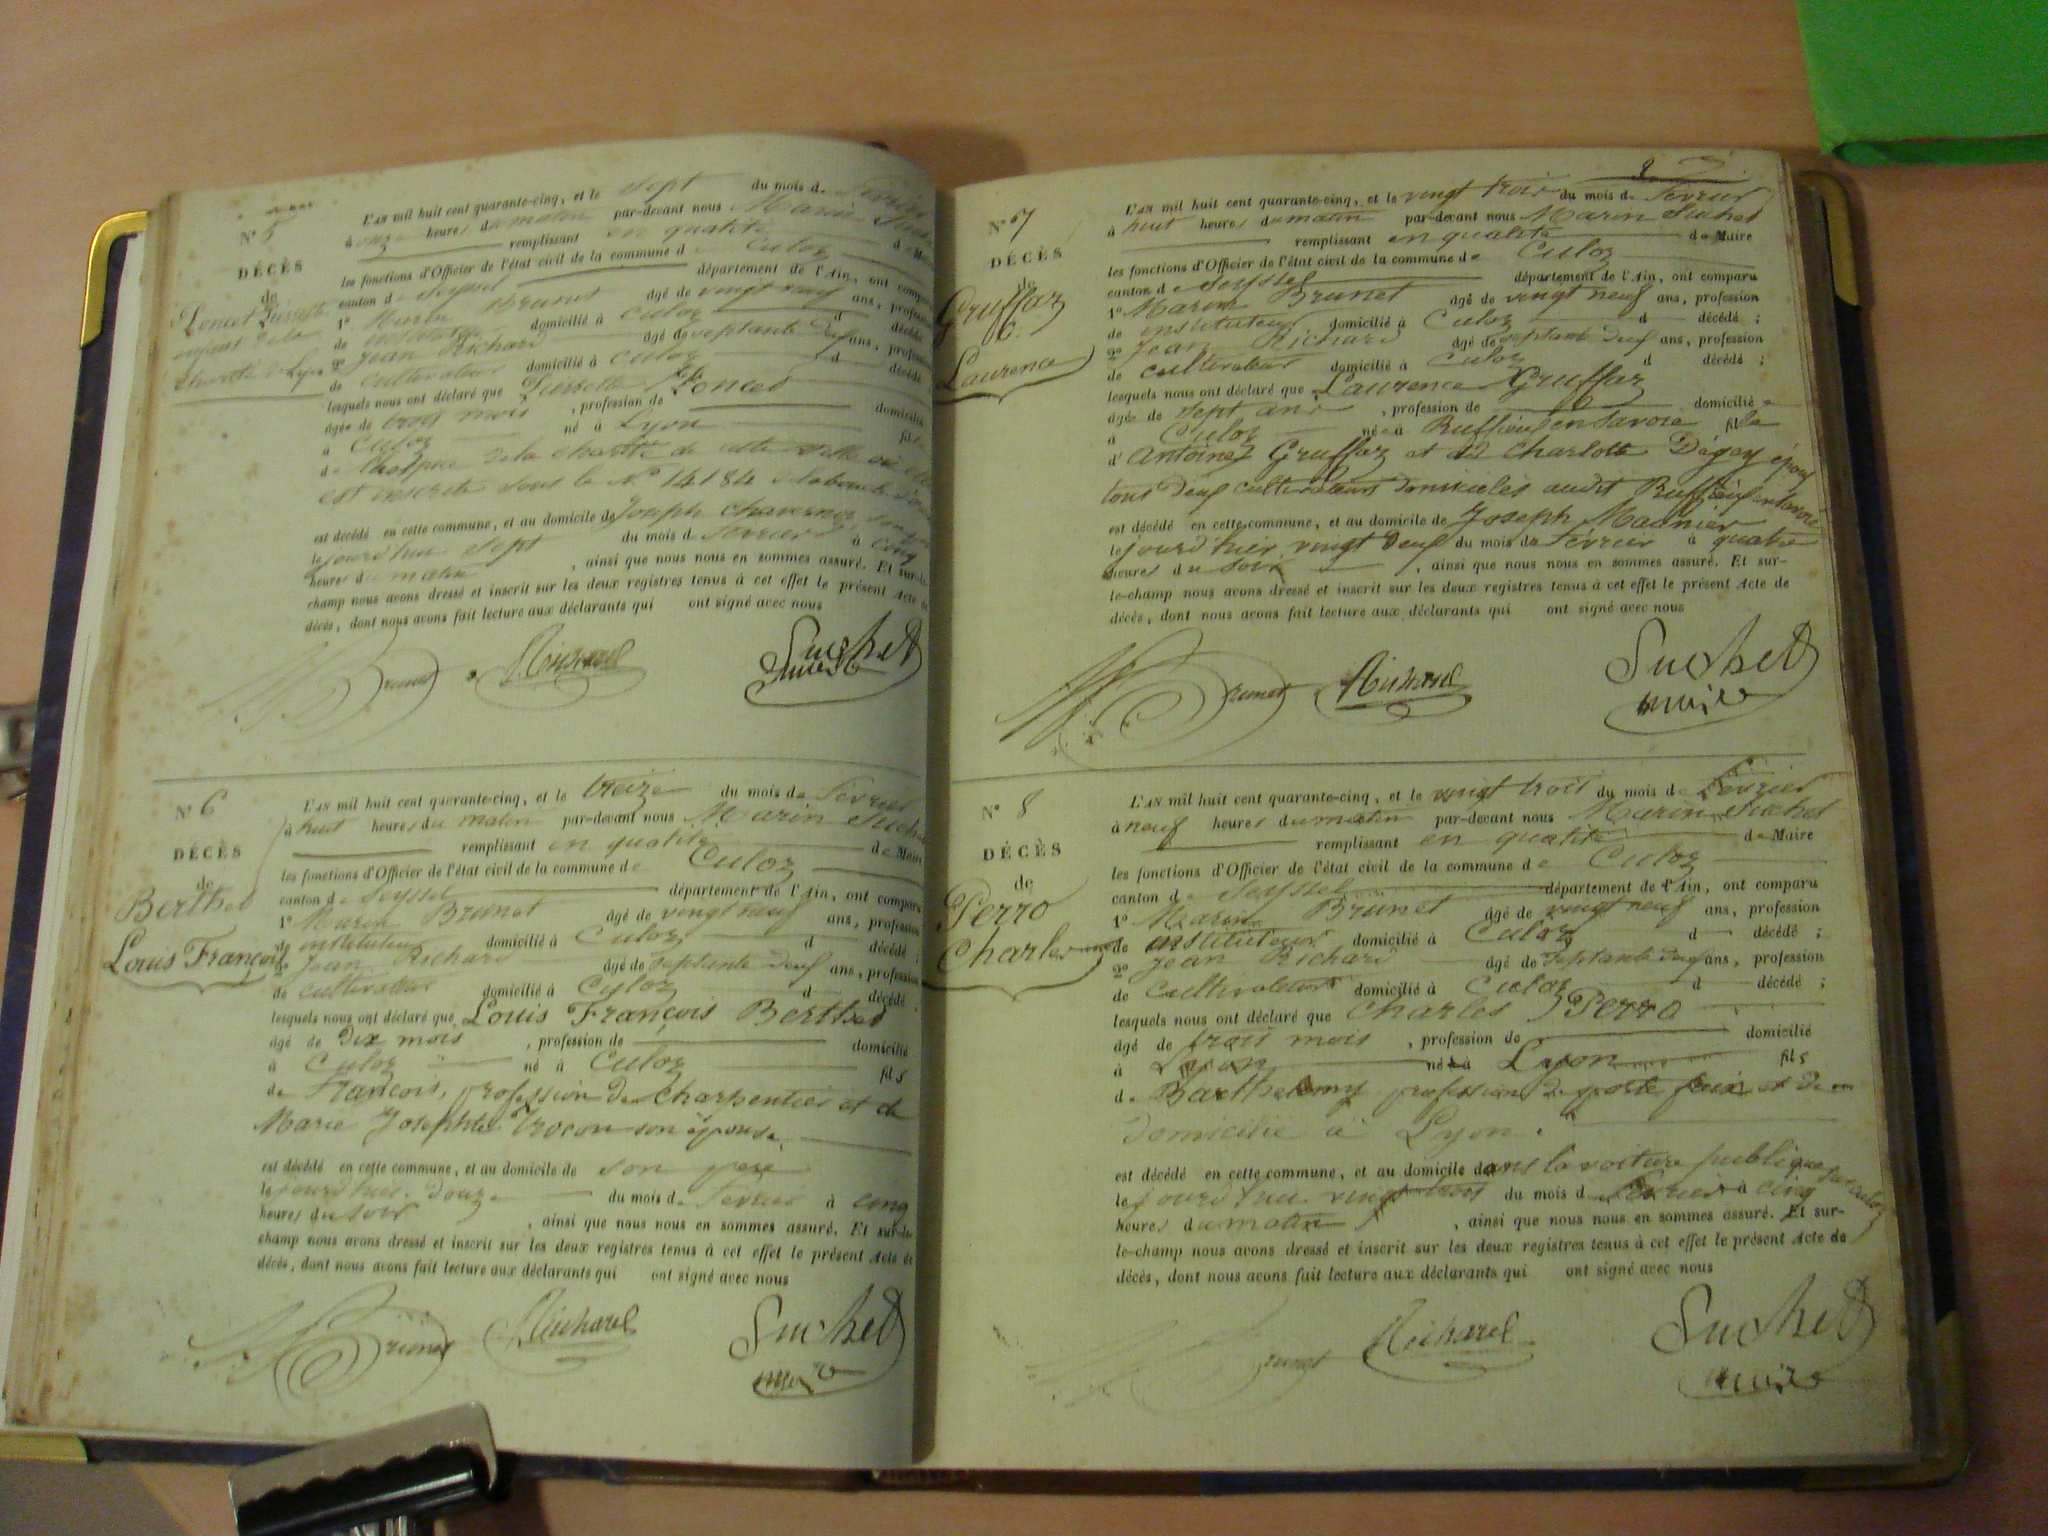 N° 5
DÉCÈS
de
Poncet
enfant de la
charité de Lyon
L'AN mil huit cent quarante-cinq, et le sept du mois de Février
à onze heures du matin par-devant nous Marin Suchet
remplissant en qualité de Maire
les fonctions d'Officier de l'état civil de la commune de Culoz
canton de Seyssel département de l'Ain, ont comparu
1° Marin Brunet âgé de vingt neuf ans, profession
de instituteur domicilié à Culoz d décédé
2° Jean Richard âgé de septante deux ans, profession
de cultivateur domicilié à Culoz d décédé
lesquels nous ont déclaré que Poncet
âgée de trois mois, profession de domicilié
à Culoz né à Lyon fil
de l'hospice de la charité de cette ville où elle
est inscrite sous le N° 14184
est décédé en cette commune, et au domicile de Joseph
le jourd'hui sept du mois de Février à cinq
heures du matin, ainsi que nous nous en sommes assuré. Et sur-le-
champ nous avons dressé et inscrit sur les deux registres tenus à cet effet le présent Acte de
décès, dont nous avons fait lecture aux déclarants qui ont signé avec nous
Brunet Richard Suchet
maire
N° 6
DÉCÈS
de
Berthet
Louis François
L'AN mil huit cent quarante-cinq, et le treize du mois de Février
à huit heures du matin par-devant nous Marin Suchet
remplissant en qualité de Maire
les fonctions d'Officier de l'état civil de la commune de Culoz
canton de Seyssel département de l'Ain, ont comparu
1° Marin Brunet âgé de vingt neuf ans, profession
de instituteur domicilié à Culoz d décédé ;
2° Jean Richard âgé de septante deux ans, profession
de cultivateur domicilié à Culoz d décédé
lesquels nous ont déclaré que Louis François Berthet
âgé de dix mois, profession de domicilié
à Culoz né à Culoz fils
de François, profession de charpentier et de
Marie Josephte Trocon son épouse
est décédé en cette commune, et au domicile de son père
le jourd'hier douze du mois de Février à cinq
heures du soir, ainsi que nous nous en sommes assuré. Et sur-le-
champ nous avons dressé et inscrit sur les deux registres tenus à cet effet le présent Acte de
décès, dont nous avons fait lecture aux déclarants qui ont signé avec nous
Brunet Richard Suchet
maire
N° 7
DÉCÈS
de
Gruffaz
Laurence
L'AN mil huit cent quarante-cinq, et le vingt trois du mois de Février
à huit heures du matin par-devant nous Marin Suchet
remplissant en qualité de Maire
les fonctions d'Officier de l'état civil de la commune de Culoz
canton de Seyssel département de l'Ain, ont comparu
1° Marin Brunet âgé de vingt neuf ans, profession
de instituteur domicilié à Culoz d décédé ;
2° Jean Richard âgé de septante deux ans, profession
de cultivateur domicilié à Culoz d décédé ;
lesquels nous ont déclaré que Laurence Gruffaz
âgée de sept ans, profession de domiciliée
à Culoz née à Ruffieux en Savoie fille
d' Antoine Gruffaz et de Charlotte Dégay époux
tous deux cultivateurs domiciliés audit Ruffieux en Savoie
est décédé en cette commune, et au domicile de Joseph Magnier
le jourd'hier vingt deux du mois de Février à quatre
heures du soir, ainsi que nous nous en sommes assuré. Et sur-
le-champ nous avons dressé et inscrit sur les deux registres tenus à cet effet le présent Acte de
décès, dont nous avons fait lecture aux déclarants qui ont signé avec nous
Brunet Richard Suchet
maire
N° 8
DÉCÈS
de
Perro
Charles
L'AN mil huit cent quarante-cinq, et le vingt trois du mois de Février
à neuf heures du matin par-devant nous Marin Suchet
remplissant en qualité de Maire
les fonctions d'Officier de l'état civil de la commune de Culoz
canton de Seyssel département de l'Ain, ont comparu
1° Marin Brunet âgé de vingt neuf ans, profession
de instituteur domicilié à Culoz d décédé ;
2° Jean Richard âgé de septante deux ans, profession
de cultivateur domicilié à Culoz d décédé ;
lesquels nous ont déclaré que Charles Perro
âgé de trois mois, profession de domicilié
à Lyon né à Lyon fils
de Barthelemy profession de porte faix et de
domicilié à Lyon.
est décédé en cette commune, et au domicile dans la voiture publique
le jourd'hui vingt trois du mois de Février à cinq
heures du matin, ainsi que nous nous en sommes assuré. Et sur-
le-champ nous avons dressé et inscrit sur les deux registres tenus à cet effet le présent Acte de
décès, dont nous avons fait lecture aux déclarants qui ont signé avec nous
Brunet Richard Suchet
maire